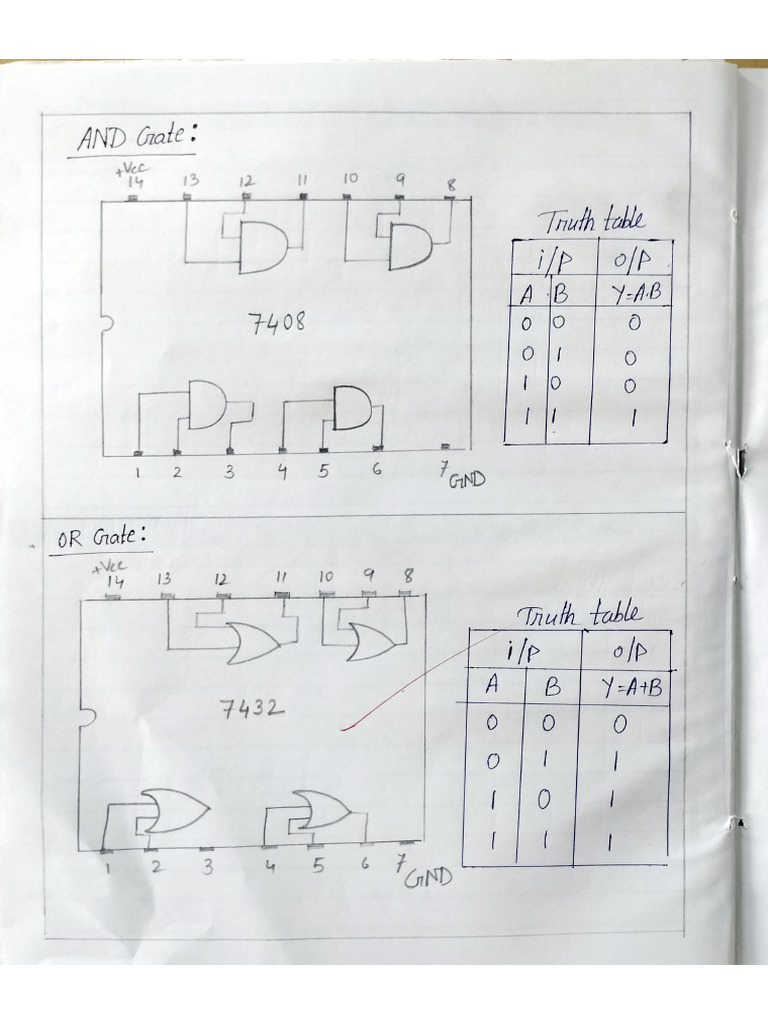 AND Gate:
+Vcc
14 13 12 11 10 9 8
7408
1 2 3 4 5 6 7 GND
Truth table
i/p o/p
A B Y=A.B
0 0 0
0 1 0
1 0 0
1 1 1
OR Gate:
+Vcc
14 13 12 11 10 9 8
7432
1 2 3 4 5 6 7 GND
Truth table
i/p o/p
A B Y=A+B
0 0 0
0 1 1
1 0 1
1 1 1